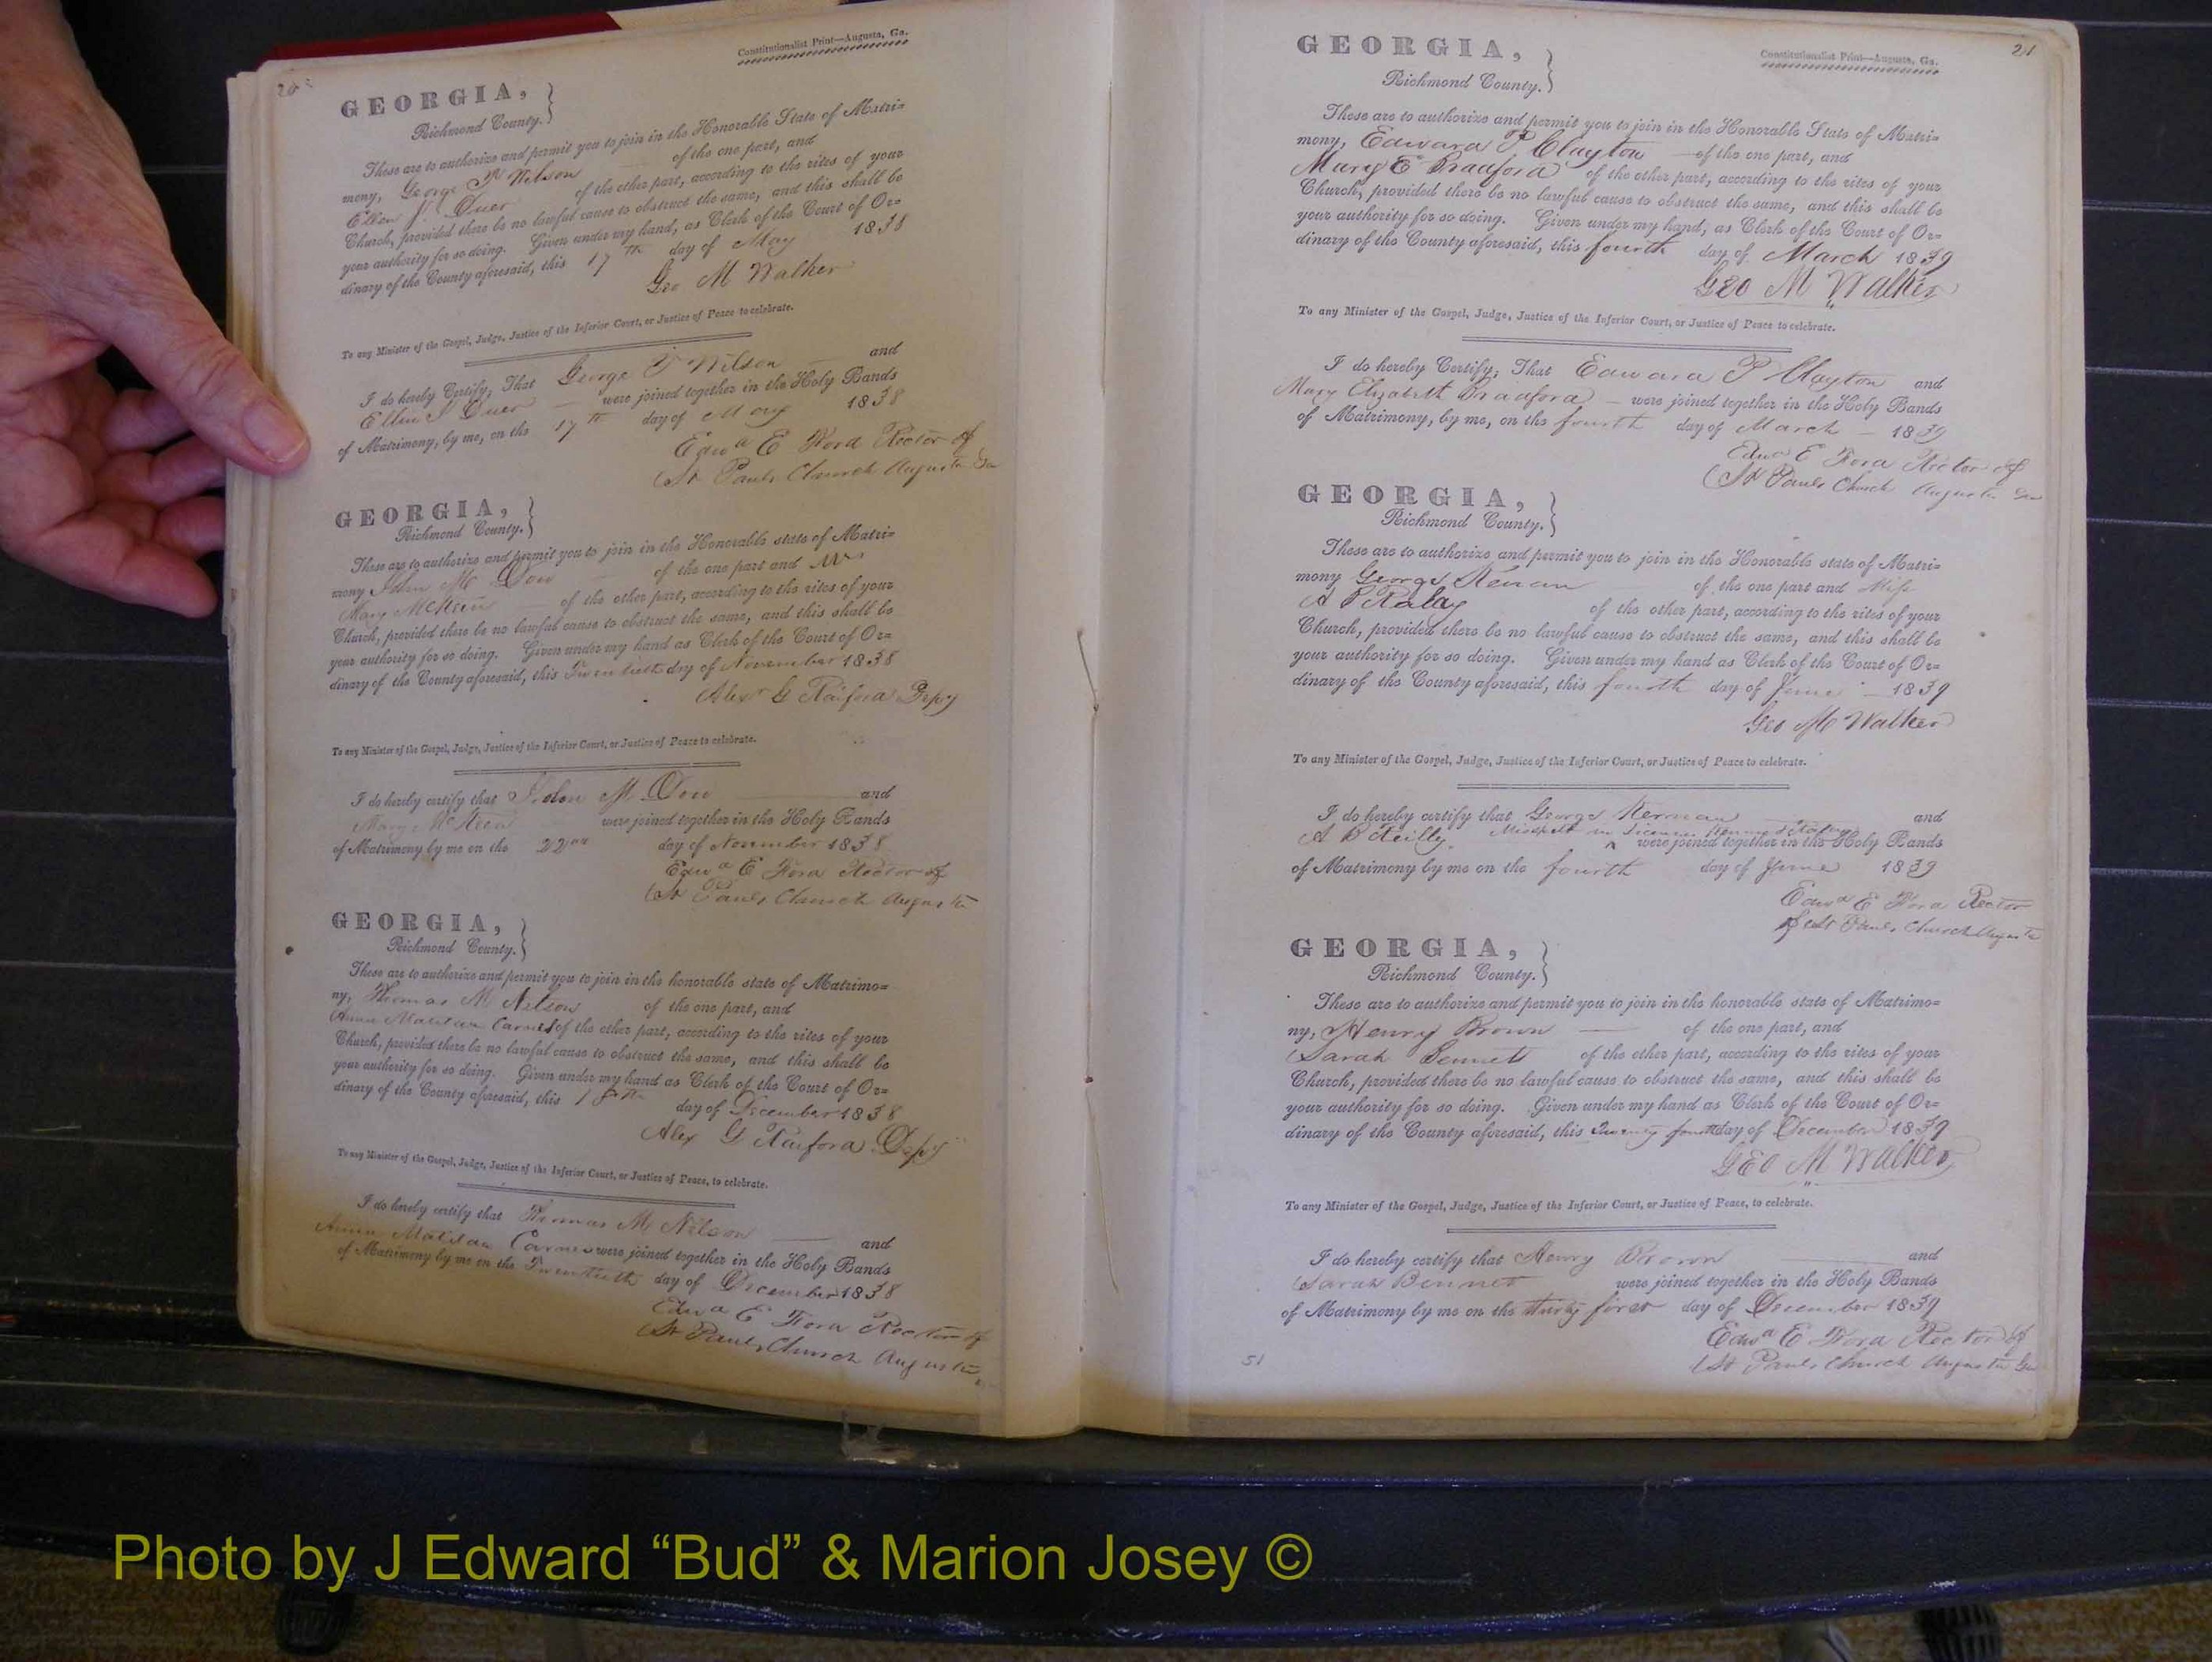 Constitutionalist Print—Augusta, Ga.
20
GEORGIA,
Richmond County.
These are to authorize and permit you to join in the Honorable State of Matri=
mony, George T Wilson of the one part, and
Ellen J. Duer of the other part, according to the rites of your
Church, provided there be no lawful cause to obstruct the same, and this shall be
your authority for so doing. Given under my hand, as Clerk of the Court of Or=
dinary of the County aforesaid, this 17th day of May 1838
Geo M Walker
To any Minister of the Gospel, Judge, Justice of the Inferior Court, or Justice of Peace to celebrate.
I do hereby Certify, That George T Wilson and
Ellen J Duer were joined together in the Holy Bands
of Matrimony, by me, on the 17th day of May 1838
Edwd E Ford Rector of
St Pauls Church Augusta Ga
GEORGIA,
Richmond County.
These are to authorize and permit you to join in the Honorable state of Matri=
mony John M Dow of the one part and
Mary McKeen of the other part, according to the rites of your
Church, provided there be no lawful cause to obstruct the same, and this shall be
your authority for so doing. Given under my hand as Clerk of the Court of Or=
dinary of the County aforesaid, this Twentieth day of November 1838
Alexr G Raiford Depy
To any Minister of the Gospel, Judge, Justice of the Inferior Court, or Justice of Peace to celebrate.
I do hereby certify that John M. Dow and
Mary McKeen were joined together in the Holy Bands
of Matrimony by me on the 22nd day of November 1838
Edwd E Ford Rector of
St Pauls Church Augusta
GEORGIA,
Richmond County.
These are to authorize and permit you to join in the honorable state of Matrimo=
ny, Thomas M Nelson of the one part, and
Anna Matilda Carnes of the other part, according to the rites of your
Church, provided there be no lawful cause to obstruct the same, and this shall be
your authority for so doing. Given under my hand as Clerk of the Court of Or=
dinary of the County aforesaid, this day of December 1838
Alex G Raiford Depy
To any Minister of the Gospel, Judge, Justice of the Inferior Court, or Justice of Peace, to celebrate.
I do hereby certify that Thomas M Nelson and
Anna Matilda Carnes were joined together in the Holy Bands
of Matrimony by me on the Twentieth day of December 1838
Edwd E Ford Rector of
St Pauls Church Augusta
21
Constitutionalist Print—Augusta, Ga.
GEORGIA,
Richmond County.
These are to authorize and permit you to join in the Honorable State of Matri=
mony, Edward P Clayton of the one part, and
Mary E Bradford of the other part, according to the rites of your
Church, provided there be no lawful cause to obstruct the same, and this shall be
your authority for so doing. Given under my hand, as Clerk of the Court of Or=
dinary of the County aforesaid, this fourth day of March 1839
Geo M Walker
To any Minister of the Gospel, Judge, Justice of the Inferior Court, or Justice of Peace to celebrate.
I do hereby Certify, That Edward P Clayton and
Mary Elizabeth Bradford were joined together in the Holy Bands
of Matrimony, by me, on the fourth day of March 1839
Edwd E Ford Rector of
St Pauls Church Augusta Ga
GEORGIA,
Richmond County.
These are to authorize and permit you to join in the Honorable state of Matri=
mony George of the one part and Miss
A B Raley of the other part, according to the rites of your
Church, provided there be no lawful cause to obstruct the same, and this shall be
your authority for so doing. Given under my hand as Clerk of the Court of Or=
dinary of the County aforesaid, this fourth day of June 1839
Geo M Walker
To any Minister of the Gospel, Judge, Justice of the Inferior Court, or Justice of Peace to celebrate.
I do hereby certify that George and
A B Reilly. Misspelt in License were joined together in the Holy Bands
of Matrimony by me on the fourth day of June 1839
Edwd E Ford Rector
of St Pauls Church Augusta
GEORGIA,
Richmond County.
These are to authorize and permit you to join in the honorable state of Matrimo=
ny, Henry Brown of the one part, and
Sarah Bennett of the other part, according to the rites of your
Church, provided there be no lawful cause to obstruct the same, and this shall be
your authority for so doing. Given under my hand as Clerk of the Court of Or=
dinary of the County aforesaid, this Twenty fourth day of December 1839
Geo M Walker
To any Minister of the Gospel, Judge, Justice of the Inferior Court, or Justice of Peace, to celebrate.
I do hereby certify that Henry Brown and
Sarah Bennet were joined together in the Holy Bands
of Matrimony by me on the thirty first day of December 1839
Edwd E Ford Rector of
St Pauls Church Augusta Ga
51
Photo by J Edward “Bud” & Marion Josey ©